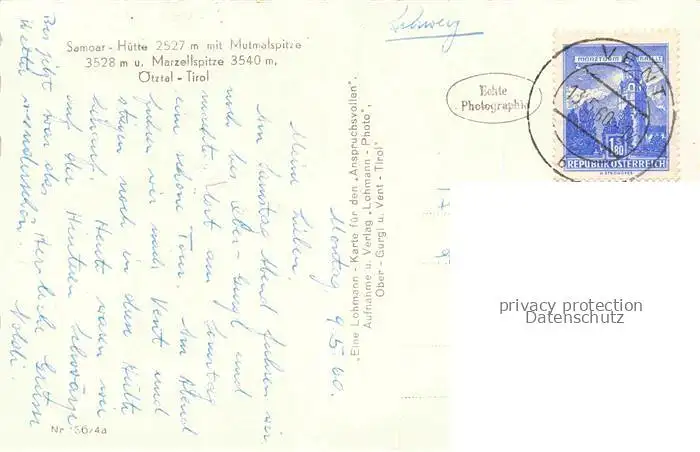 Schweiz
Samoar - Hütte 2527 m mit Mutmalspitze
3528 m u. Marzellspitze 3540 m,
Ötztal - Tirol
Echte
Photographie
VENT
MÜNZTURM
HALL i. T.
1.80
REPUBLIK ÖSTERREICH
„Eine Lohmann - Karte für den „Anspruchsvollen",
Aufnahme u. Verlag „Lohmann - Photo",
Ober - Gurgl u. Vent - Tirol"
Montag 9.5.60.
Meine Lieben,
Am Samstag Abend fuhren wir
noch bis Ober-Gurgl und
machten dort am Sonntag
eine schöne Tour. Am Abend
fuhren wir nach Vent und
stiegen noch in dem Hütte
hinauf. Heute waren wir
auf der Hinteren Schwärze
Bis jetzt war das
Wetter wunderschön.
Herzliche Grüsse
Noldi.
Nr. 56/4a
privacy protection
Datenschutz